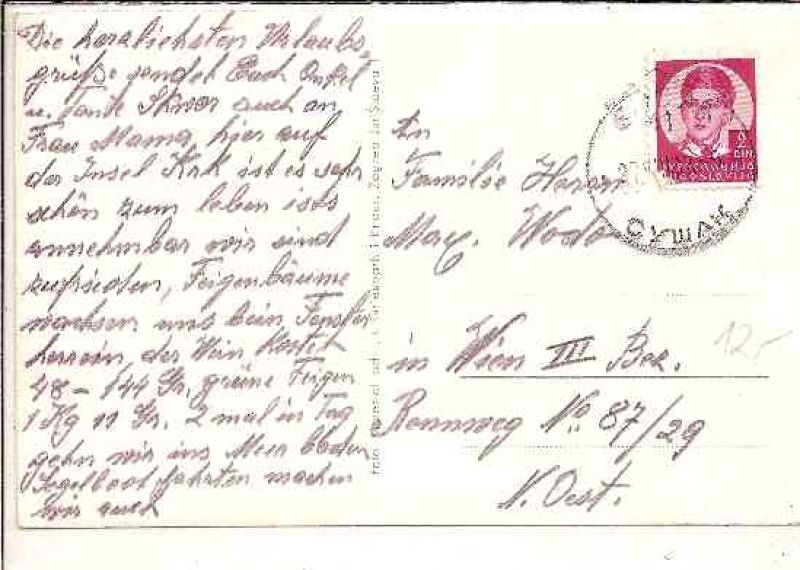 Die herzlichsten Urlaubs,
grüße sendet Euch Onkel
u. Tante auch an
Frau Mama, hier auf
der Insel Krk ist es sehr
schön zum leben ists
annehmbar wir sind
zufrieden, Feigenbäume
wachsen uns beim Fenster
herrein, der Wein kostet
48 – 144 Gr, grüne Feigen
1 Kg 11 Gr. 2 mal in Tag
gehn wir ins Meer baden
Segelboot fahrten machen
wir auch
An
Familie Herrn
Max. Wodo
in Wien III Bez.
Rennweg No 87/29
N. Oest.
12,-
2
DIN
JUGOSLAVIJA
СУШАК